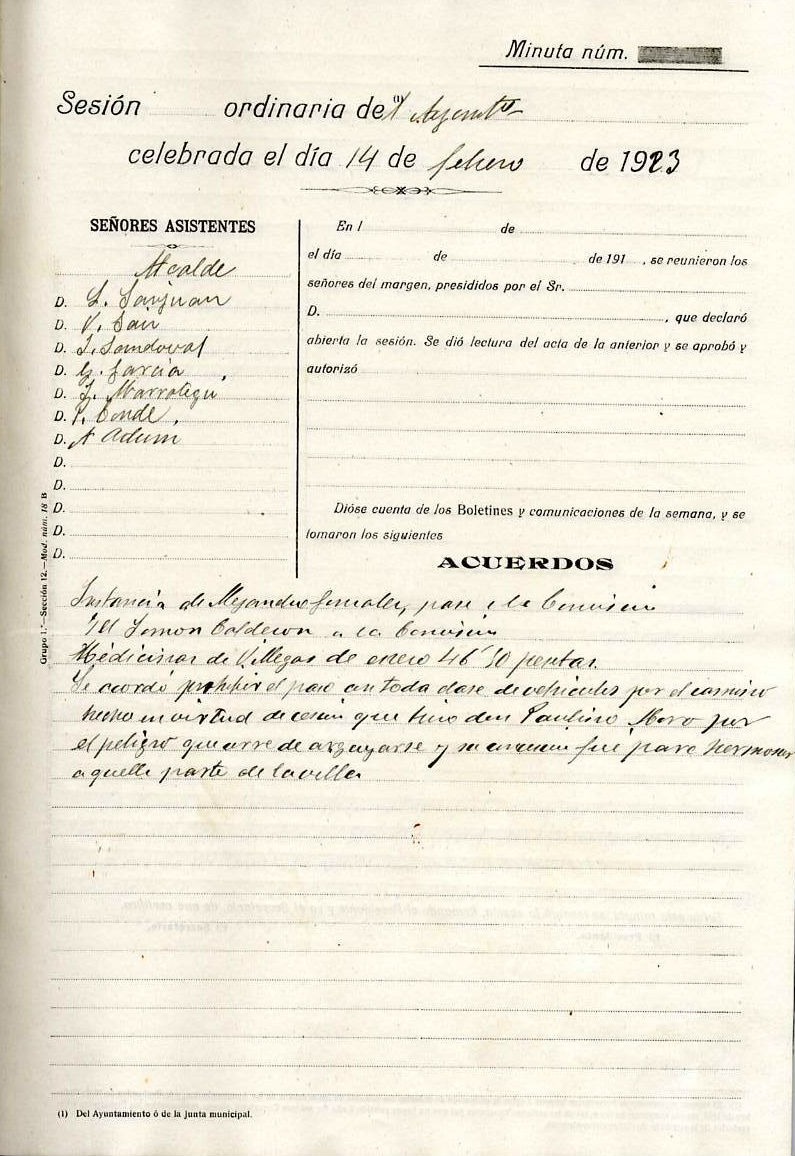 Minuta núm.
Sesión ordinaria de(1)l Ayuntto
celebrada el día 14 de febrero de 1923
SEÑORES ASISTENTES
Alcalde
D. L. Sanjuan
D. V. Sain
D. J. Sandoval
D. G. Garcia
D. J. Marrotegu
D. P. Conde
D. A Adum
D.
D.
D.
D.
D.
En l de
el día de de 191 , se reunieron los
señores del margen, presididos por el Sr.
D. , que declaró
abierta la sesión. Se dió lectura del acta de la anterior y se aprobó y
autorizó
Dióse cuenta de los Boletines y comunicaciones de la semana, y se
tomaron los siguientes
ACUERDOS
Instancia de Alejandro Gonzalez, pase a la Comision
Id Simon Calderon a la Comision
Medicinas de Villegas de enero 46'50 pesetas
Se acordó prohibir el paso con toda clase de vehiculos por el camino
hecho en virtud de cesión que hizo don Paulino Moro por
el peligro que corre de arguyarse y su cesion fue para hermosear
aquella parte de la villa
Grupo 1.º—Sección 12.—Mod. núm. 18 B
(1) Del Ayuntamiento ó de la Junta municipal.